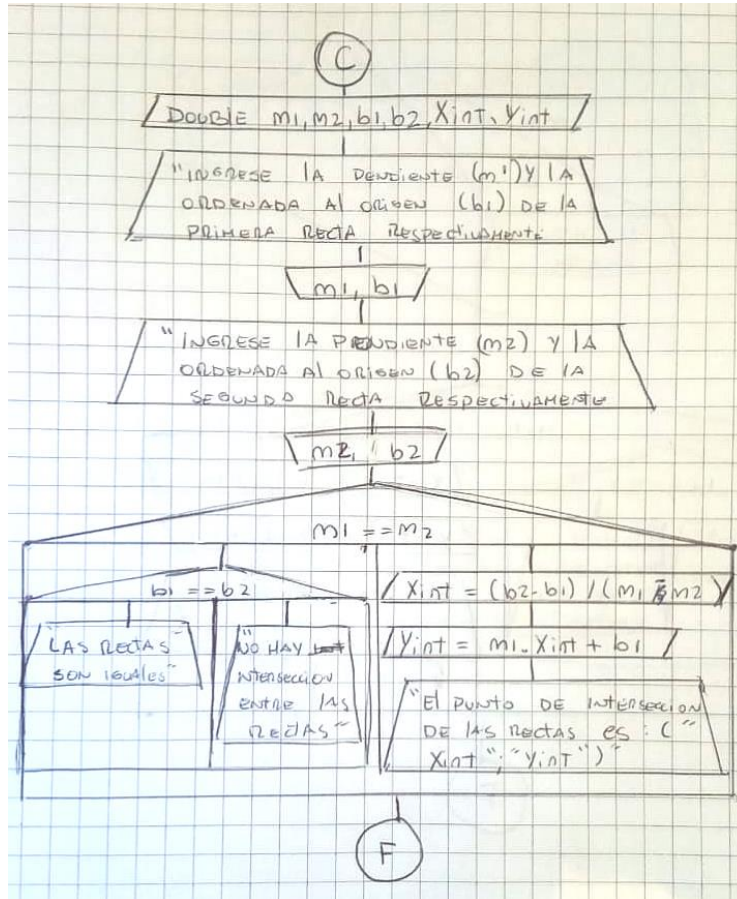 C
DOUBLE m1, m2, b1, b2, Xint, Yint
"INGRESE LA PENDIENTE (m1) Y LA
ORDENADA AL ORIGEN (b1) DE LA
PRIMERA RECTA RESPECTIVAMENTE
m1, b1
"INGRESE LA PENDIENTE (m2) Y LA
ORDENADA AL ORIGEN (b2) DE LA
SEGUNDA RECTA RESPECTIVAMENTE
m2, b2
m1 == m2
b1 == b2
"LAS RECTAS
SON IGUALES"
"NO HAY
INTERSECCION
ENTRE LAS
RECTAS"
Xint = (b2-b1) / (m1 - m2)
Yint = m1. Xint + b1
"El PUNTO DE INTERSECCION
DE LAS RECTAS es: ("
Xint ";" Yint ")"
F